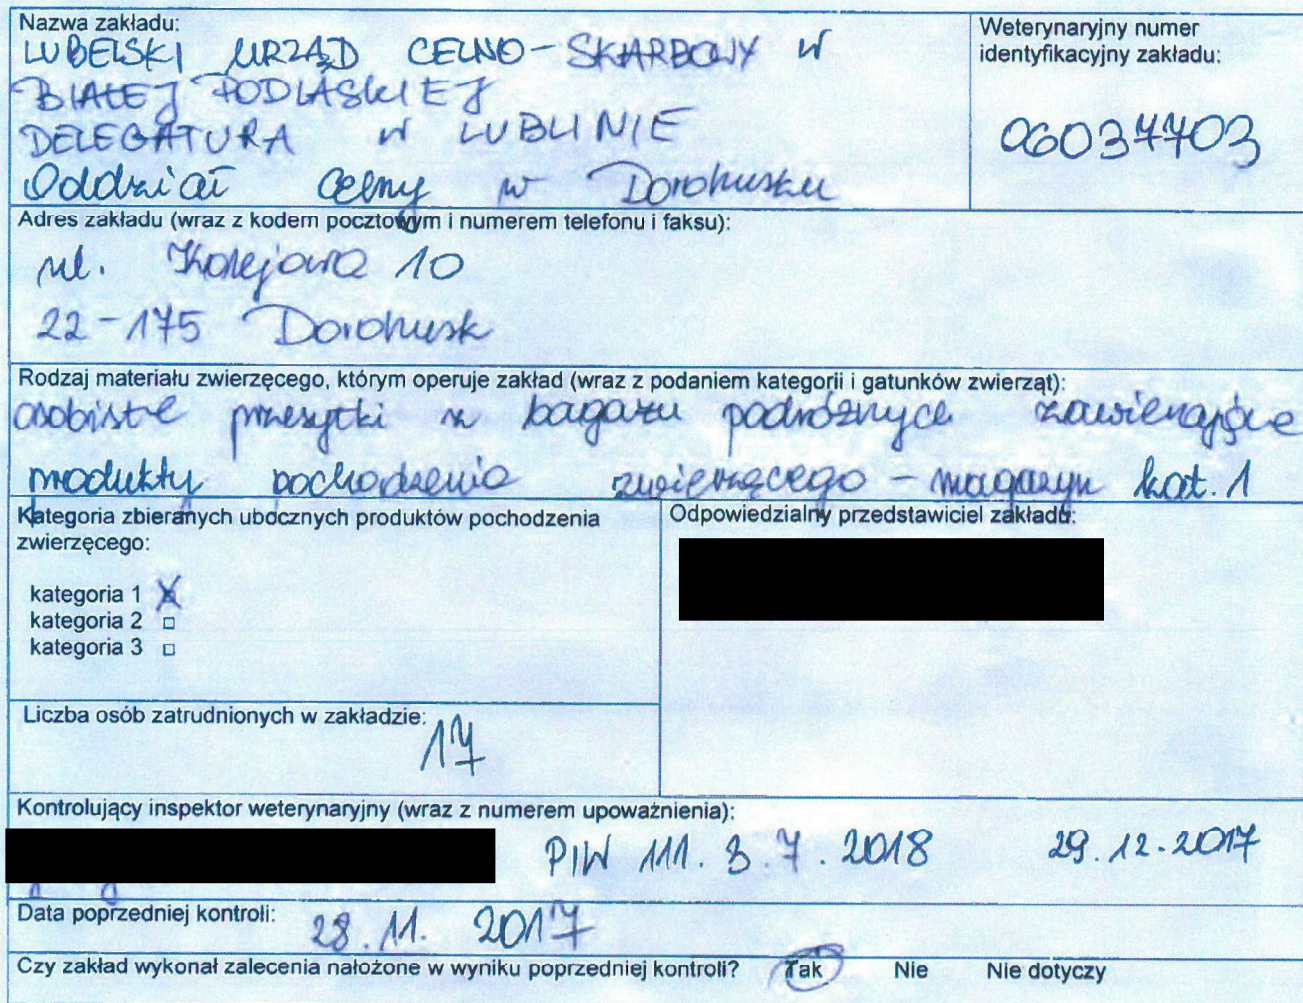 Nazwa zakładu:
LUBELSKI URZĄD CELNO-SKARBOWY W
BIAŁEJ PODLASKIEJ
DELEGATURA W LUBLINIE
Oddział Celny w Dorohusku
Weterynaryjny numer
identyfikacyjny zakładu:
06037703
Adres zakładu (wraz z kodem pocztowym i numerem telefonu i faksu):
ul. Kolejowa 10
22-175 Dorohusk
Rodzaj materiału zwierzęcego, którym operuje zakład (wraz z podaniem kategorii i gatunków zwierząt):
osobiste przesyłki w bagażu podróżnych zawierające
produkty pochodzenia zwierzęcego - magazyn kat. 1
Kategoria zbieranych ubocznych produktów pochodzenia
zwierzęcego:
kategoria 1 X
kategoria 2 □
kategoria 3 □
Odpowiedzialny przedstawiciel zakładu:
Liczba osób zatrudnionych w zakładzie:
17
Kontrolujący inspektor weterynaryjny (wraz z numerem upoważnienia):
PIW 111. 3. 7. 2018 29.12.2017
Data poprzedniej kontroli: 28.11. 2017
Czy zakład wykonał zalecenia nałożone w wyniku poprzedniej kontroli? Tak Nie Nie dotyczy